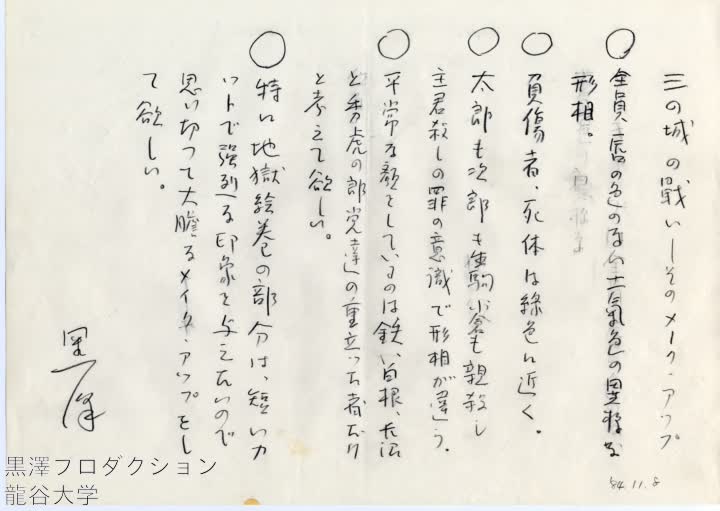 三の城の戰い―そのメーク・アップ
○全員唇の色のない土氣色の異様な
形相。
○負傷者、死体は綠色に近く。
○太郎も次郎も生駒小倉も親殺し
主君殺しの罪の意識で形相が違う。
○平常な顔をしているのは鉄い白根、大沼
と秀虎の郎党達の重立った者だけ
と考えて欲しい。
○特に地獄絵巻の部分は、短いカ
ットで強烈な印象を与えたいので
思い切って大膽なメイク・アップをし
て欲しい。
黒澤プロダクション
龍谷大学
84.11.8